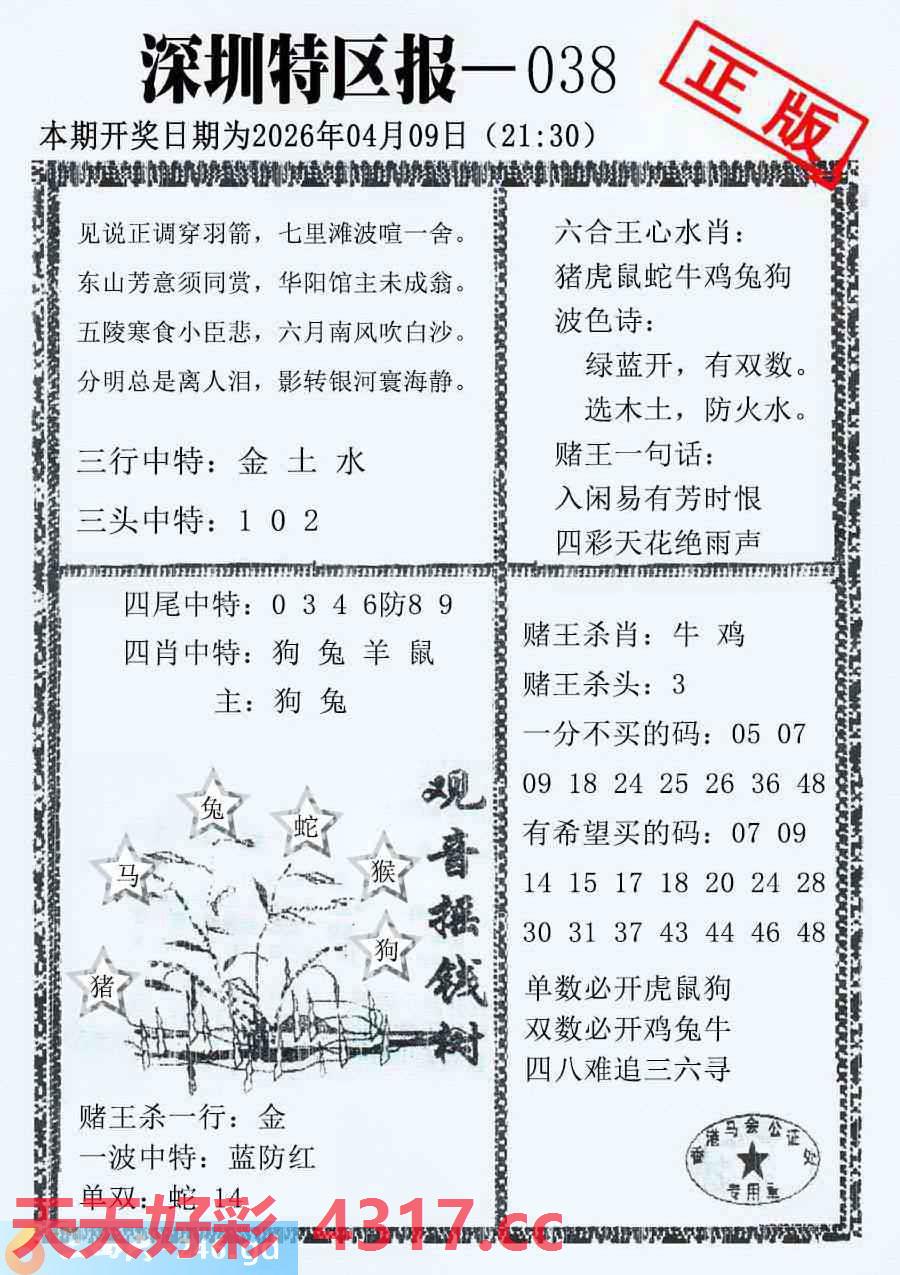 深圳特区报—038
正版
本期开奖日期为2026年04月09日（21:30）
见说正调穿羽箭，七里滩波喧一舍。
东山芳意须同赏，华阳馆主未成翁。
五陵寒食小臣悲，六月南风吹白沙。
分明总是离人泪，影转银河寰海静。
三行中特：金 土 水
三头中特：1 0 2
六合王心水肖：
猪虎鼠蛇牛鸡兔狗
波色诗：
绿蓝开，有双数。
选木土，防火水。
赌王一句话：
入闲易有芳时恨
四彩天花绝雨声
四尾中特：0 3 4 6防8 9
四肖中特：狗 兔 羊 鼠
主：狗 兔
观音摇钱树
兔
蛇
马
猴
狗
猪
赌王杀一行：金
一波中特：蓝防红
单双：蛇 14
赌王杀肖：牛 鸡
赌王杀头：3
一分不买的码：05 07
09 18 24 25 26 36 48
有希望买的码：07 09
14 15 17 18 20 24 28
30 31 37 43 44 46 48
单数必开虎鼠狗
双数必开鸡兔牛
四八难追三六寻
香港马会公证处
专用章
天天好彩 4317.cc